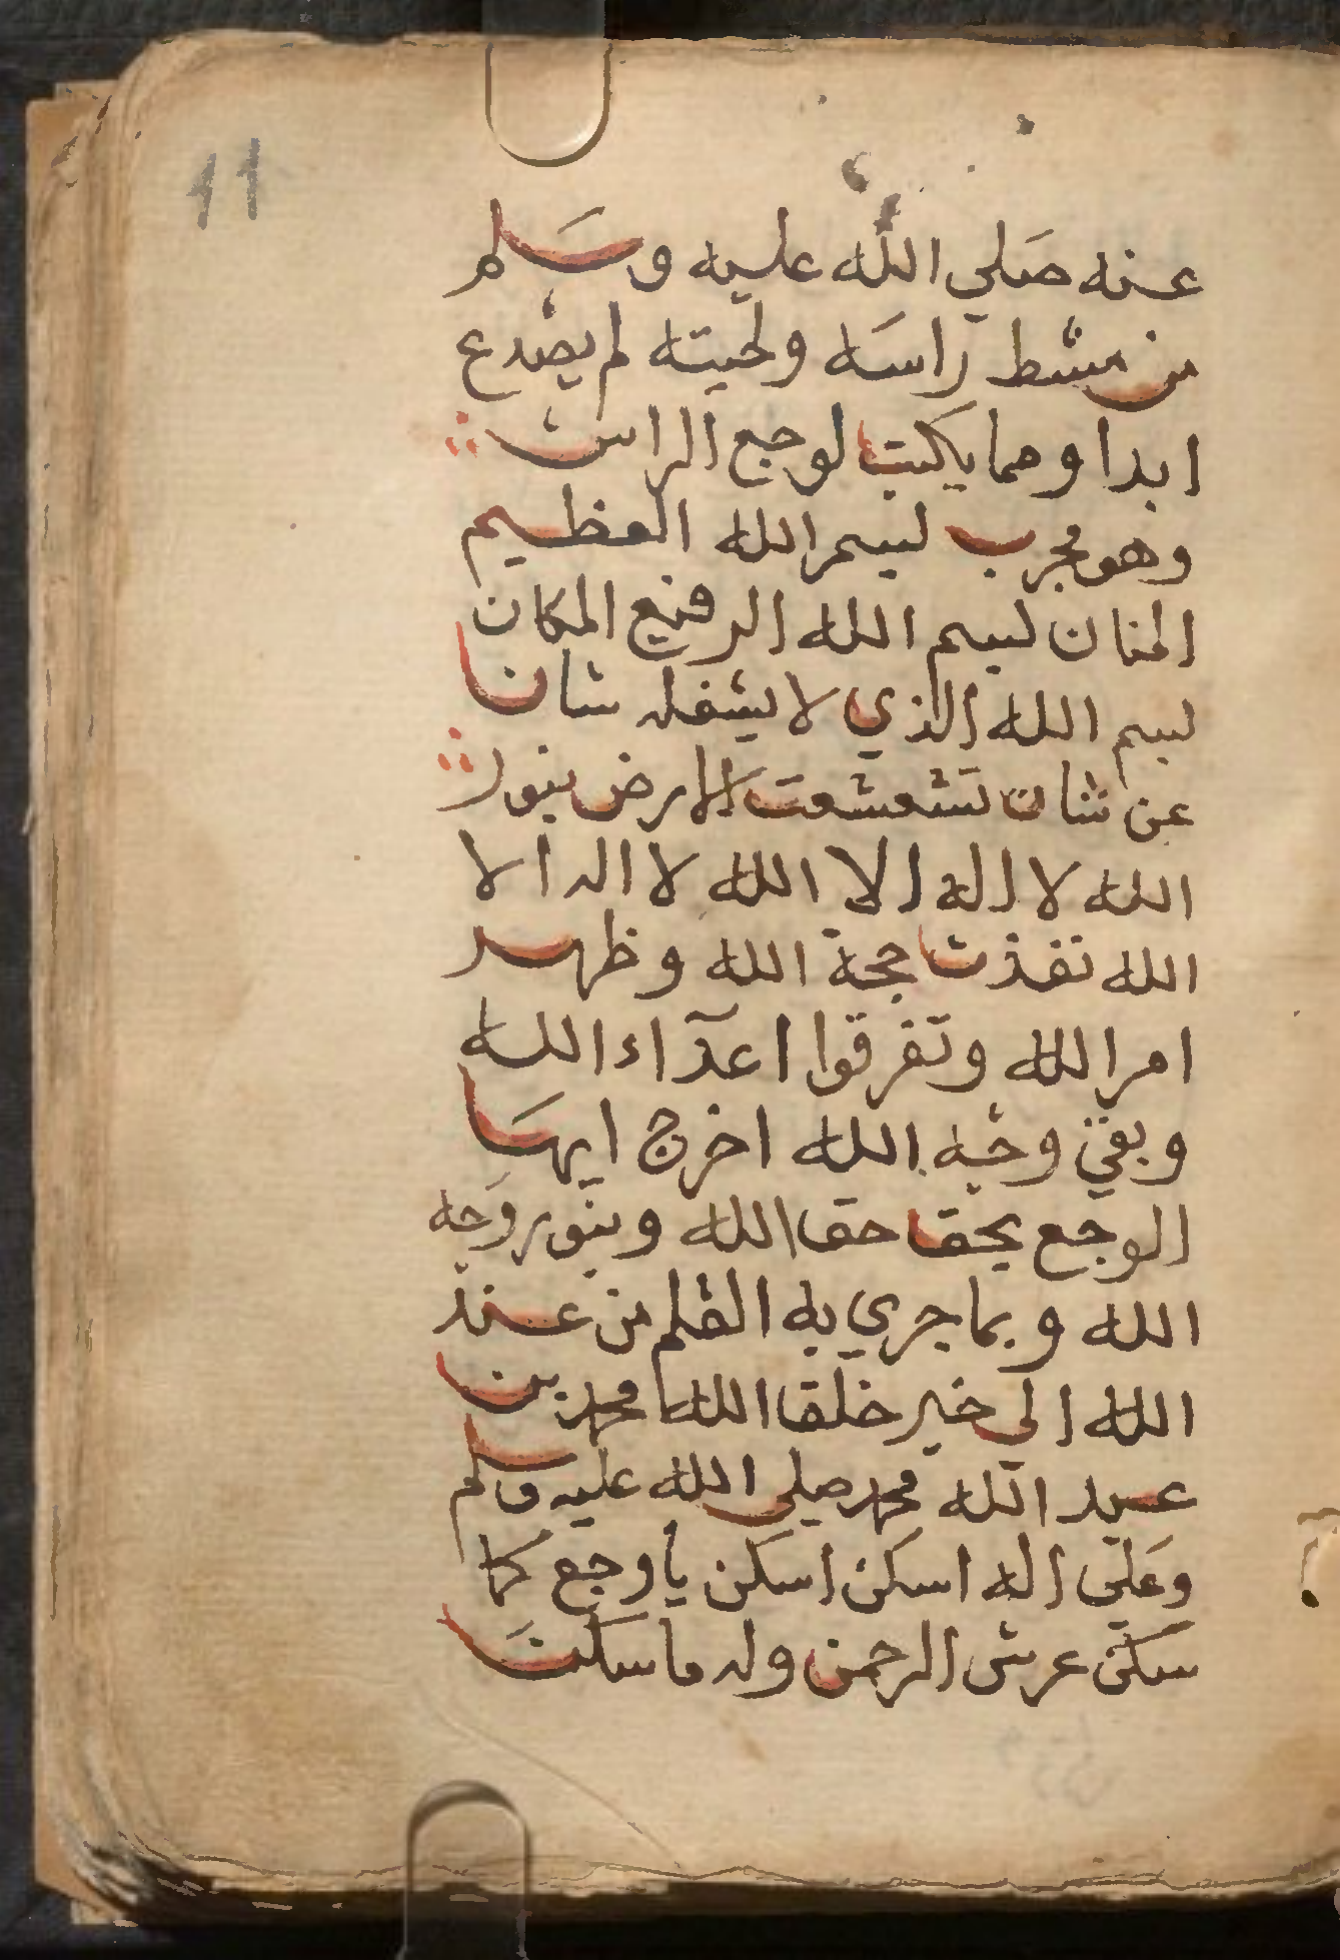 11
عنه صَلي الله عليه وسَلم
من مشط راسَه ولحيته لم يصدع
ابدا ومما يكتب لوجع الراس
وهو مجرب لبسم الله العظيم
الحنان لبسم الله الرفيع المكان
لبسم الله الذي لا يشغله شان
عن شان تشعشعت الارض بنور
الله لا اله الا الله لا اله الا
الله نفذت حجة الله وظهر
امر الله وتفرقوا اعدآء الله
وبقي وجه الله اخرج ايهَا
الوجع بحق حق الله وبنور وجه
الله وبما جري به القلم من عند
الله الي خير خلق الله محمد بن
عبد الله محمد صلي الله عليه وسلم
وعَلي اله اسكن اسكن يا وجع كما
سكن عرش الرحمن وله ما سكنَ